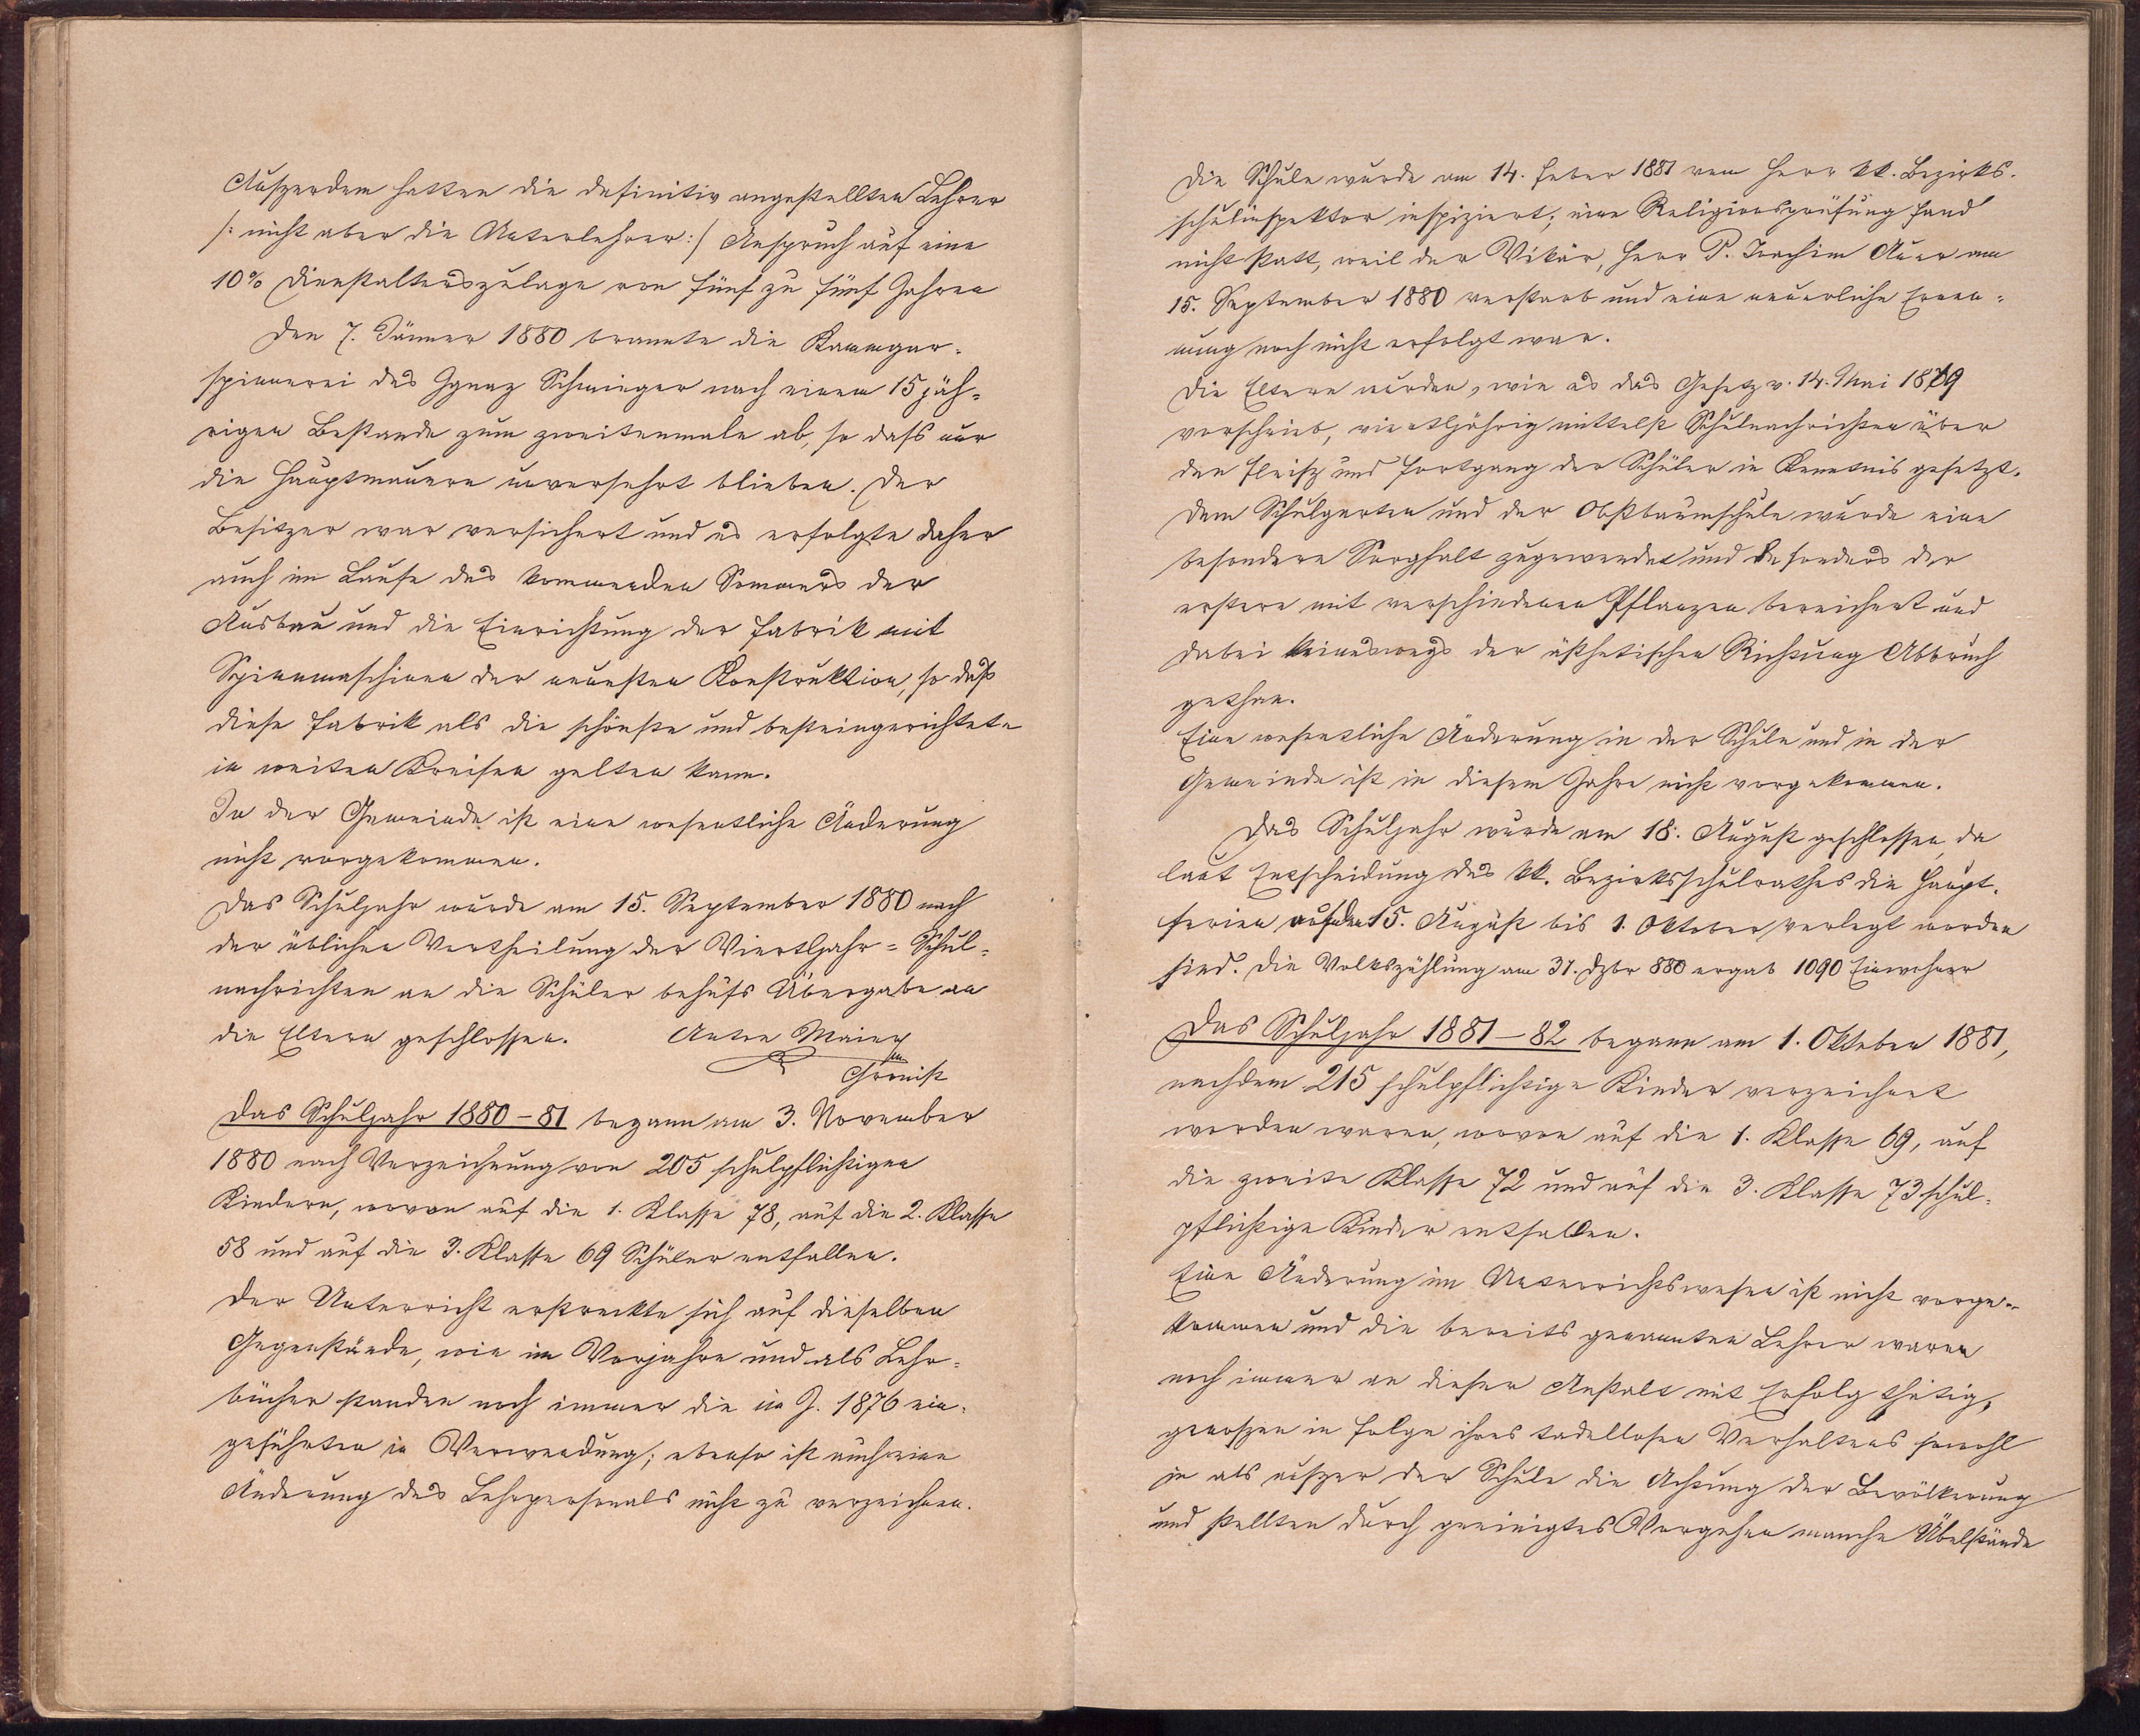 Auszerdem hatten die definitiv angestellten Lehrer
/: nicht aber die Unterlehrer :/ Anspruch auf eine
10% Dienstalterszulage von fünf zu fünf Jahren
Den 7. Jänner 1880 brannte die Kammgar-
spinnerei des Ignaz Schmieger nach einem 15 jäh-
rigen Bestande zum zweitenmale ab, so dass nur
die Hauptmauern unversehrt blieben. Der
Besitzer war versichert und es erfolgte daher
auch im Laufe des kommenden Sommers der
Ausbau und die Einrichtung der Fabrik mit
Spinnmaschinen der neuesten Konstruktion, so dass
diese Fabrik als die schönste und besteingerichtete
in weiten Kreisen gelten kann.
In der Gemeinde ist eine wesentliche Änderung
nicht vorgekommen.
Das Schuljahr wurde am 15. September 1880 nach
der üblichen Vertheilung der Viertljahr-Schul-
nachrichten an die Schüler behufs Übergabe an
die Eltern geschlossen. Anton Maier
Chronist
Das Schuljahr 1880-81 begann am 3. November
1880 nach Verzeichnung von 205 schulpflichtigen
Kindern, wovon auf die 1. Klasse 78, auf die 2. Klasse
58 und auf die 3. Klasse 69 Schüler entfallen.
Der Unterricht erstreckte sich auf dieselben
Gegenstände, wie im Vorjahre und als Lehr-
bücher standen noch immer die im J. 1876 ein-
geführten in Verwendung; ebenso ist auch eine
Änderung des Lehrpersonals nicht zu verzeichnen.
Die Schule wurde am 14. Feber 1881 vom Herr kk. Bezirks-
schulinspektor inspiziert; eine Religionsprüfung fand
nicht statt, weil der Vikär, Herr P. Joachim Auer am
15. September 1880 verstarb und eine neuerliche Ernen-
nung noch nicht erfolgt war.
Die Eltern wurden, wie es das Gesetz v. 14. Mai 1879
vorschrieb, viertljährig mittelst Schulnachrichten über
den Fleisz und Fortgang der Schüler in Kenntnis gesetzt.
Dem Schulgarten und der Obstbaumschule wurde eine
besondere Sorgfalt zugewendet und besonders der
erstere mit verschiedenen Pflanzen bereichert und
dabei keineswegs der ästhetischen Richtung Abbruch
gethan.
Eine wesentliche Änderung in der Schule und in der
Gemeinde ist in diesem Jahre nicht vorgekommen.
Das Schuljahr wurde am 18. August geschlossen, da
laut Entscheidung des kk. Bezirksschulrathes die Haupt-
ferien auf den 15. August bis 1. Oktober verlegt worden
sind. Die Volkszählung am 31. Dzbr 880 ergab 1090 Einwohner
Das Schuljahr 1881-82 begann am 1. Oktober 1881,
nachdem 215 schulpflichtige Kinder verzeichnet
worden waren, wovon auf die 1. Klasse 69, auf
die zweite Klasse 72 und auf die 3. Klasse 73 schul-
pflichtige Kinder entfallen.
Eine Änderung im Unterrichtswesen ist nicht vorge-
kommen und die bereits genannten Lehrer waren
noch immer an dieser Anstalt mit Erfolg thätig,
genoszen in Folge ihres tadellosen Verhaltens sowohl
in als auszer der Schule die Achtung der Bevölkerung
und stellten durch geeinigtes Vorgehen manche Übelstände